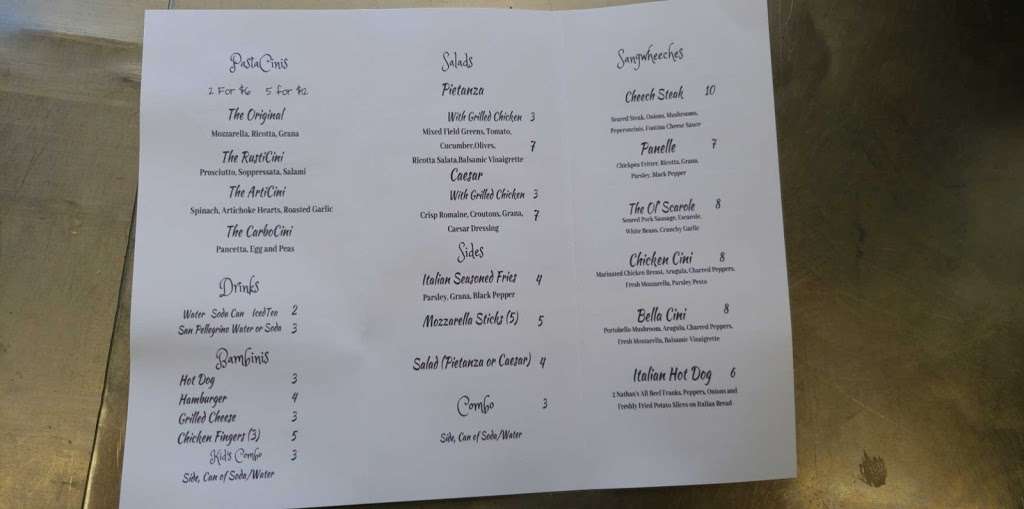 PastaCinis
2 For $6 5 for $12
The Original
Mozzarella, Ricotta, Grana
The RustiCini
Prosciutto, Soppressata, Salami
The ArtiCini
Spinach, Artichoke Hearts, Roasted Garlic
The CarboCini
Pancetta, Egg and Peas
Drinks
Water Soda Can Iced Tea 2
San Pellegrino Water or Soda 3
Bambinis
Hot Dog 3
Hamburger 4
Grilled Cheese 3
Chicken Fingers (3) 5
Kid's Combo 3
Side, Can of Soda/Water
Salads
Pietanza
With Grilled Chicken 3
Mixed Field Greens, Tomato,
Cucumber, Olives, 7
Ricotta Salata, Balsamic Vinaigrette
Caesar
With Grilled Chicken 3
Crisp Romaine, Croutons, Grana, 7
Caesar Dressing
Sides
Italian Seasoned Fries 4
Parsley, Grana, Black Pepper
Mozzarella Sticks (5) 5
Salad (Pietanza or Caesar) 4
Combo 3
Side, Can of Soda/Water
Sangwheeches
Cheech Steak 10
Seared Steak, Onions, Mushrooms,
Peperoncinis, Fontina Cheese Sauce
Panelle 7
Chickpea Fritter, Ricotta, Grana,
Parsley, Black Pepper
The Ol' Scarole 8
Seared Pork Sausage, Escarole,
White Beans, Crunchy Garlic
Chicken Cini 8
Marinated Chicken Breast, Arugula, Charred Peppers,
Fresh Mozzarella, Parsley Pesto
Bella Cini 8
Portobello Mushroom, Arugula, Charred Peppers,
Fresh Mozzarella, Balsamic Vinaigrette
Italian Hot Dog 6
2 Nathan's All Beef Franks, Peppers, Onions and
Freshly Fried Potato Slices on Italian Bread